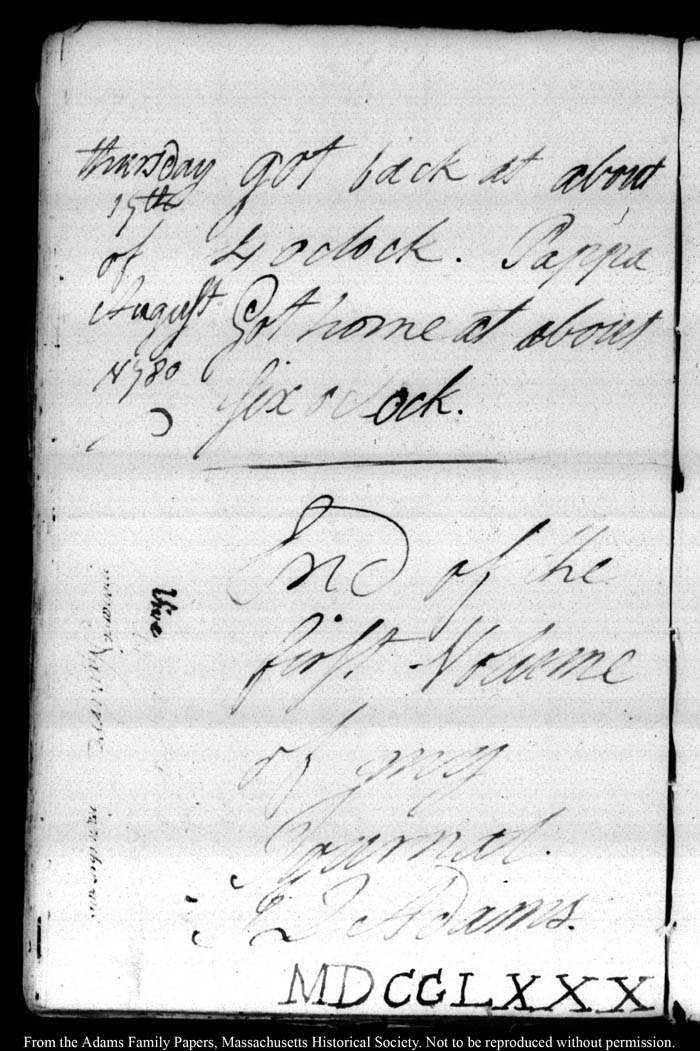 thursday
17th
of
August
1780
got back at about
4 oclock. Pappa
Got home at about
six oclock.
End of the
first Volume
of my
Journal.
J Q Adams.
MDCCLXXX
Vive
From the Adams Family Papers, Massachusetts Historical Society. Not to be reproduced without permission.